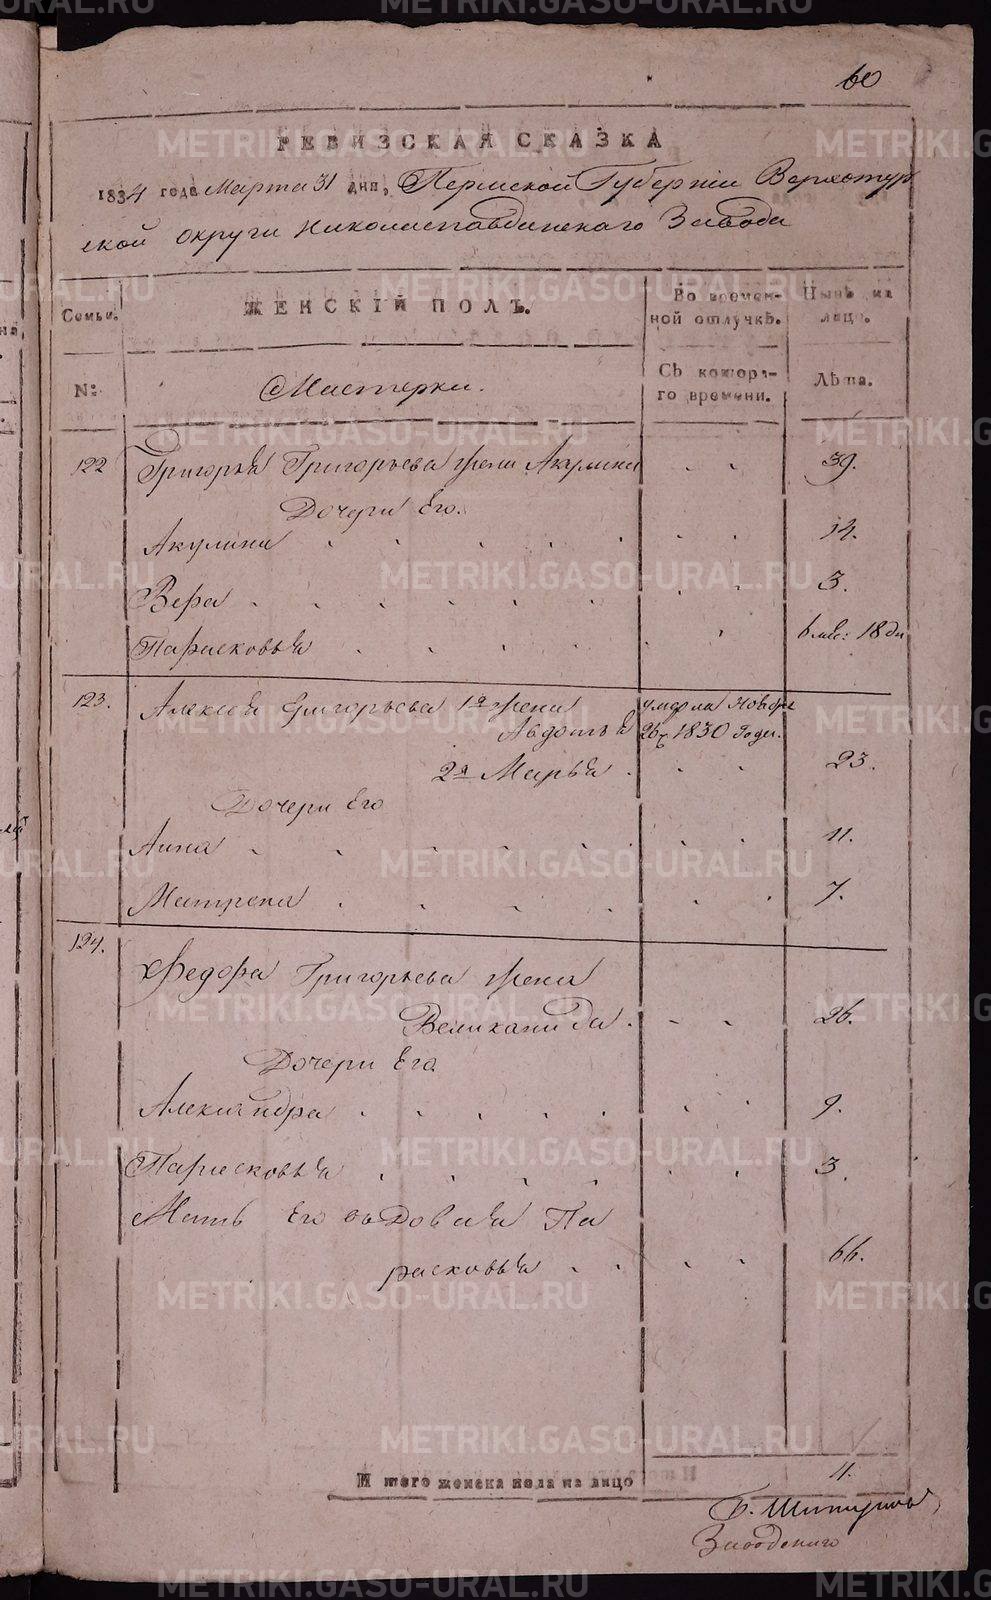 60
РЕВИЗСКАЯ СКАЗКА
1834 года Марта 31 дня, Пермской Губернiи Верхотур
ской округи Николаепавдинскаго Завода
Семьи.
ЖЕНСКIЙ ПОЛЪ.
Во времен-
ной отлучкѣ.
Нынѣ на
лицо.
N:
Мастерки.
Съ котора-
го времени.
Лѣта.
122 Григорья Григорьева жена Акулина 39.
Дочери Его.
Акулина 14.
Вера 3.
Парасковья 6 мес: 18 дн
123. Алексея Григорьева 1я жена умерла Ноября
Авдотья 26 1830 Года.
2я Марья 23.
Дочери Его
Анна 11.
Матрена 7.
124.
Федора Григорьева жена
Великанида 26.
Дочери Его
Александра 9.
Парасковья 3.
Мать Его вдовая Па
расковья 66.
И того женска пола на лицо 11.
Заводскаго
METRIKI.GASO-URAL.RU